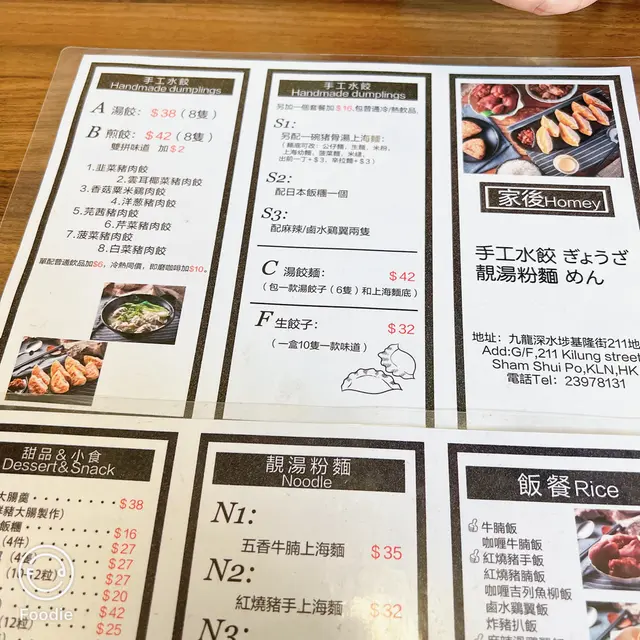 手工水餃
Handmade dumplings
A 湯餃: $38 (8隻)
B 煎餃: $42 (8隻)
雙拼味道 加$2
1.韭菜豬肉餃
2.雲耳椰菜豬肉餃
3.香菇粟米鷄肉餃
4.洋葱豬肉餃
5.芫茜豬肉餃
6.芹菜豬肉餃
7.菠菜豬肉餃
8.白菜豬肉餃
單配普通飲品加$6，冷熱同價，即磨咖啡加$10。
手工水餃
Handmade dumplings
另加一個套餐加$16.包普通冷/熱飲品,
S1:
另配一碗猪骨湯上海麵:
(麵底可改: 公仔麵、生麵、米粉,
上海幼麵、菠菜麵、米綫,
出前一丁+$3、辛拉麵+$3)
S2:
配日本飯糰一個
S3:
配麻辣/鹵水鷄翼兩隻
C 湯餃麵: $42
(包一款湯餃子(6隻)和上海麵底)
F 生餃子: $32
(一盒10隻一款味道)
家後Homey
手工水餃 ぎょうざ
靚湯粉麵 めん
地址: 九龍深水埗基隆街211地
Add:G/F,211 Kilung street
Sham Shui Po,KLN,HK
電話Tel: 23978131
甜品&小食
Dessert&Snack
大腸羹 $38
豬大腸製作)
飯糰 $16
(4件) $27
(4隻) $27
$27
$20
$42
(12粒) $25
靚湯粉麵
Noodle
N1:
五香牛腩上海麵 $35
N2:
紅燒豬手上海麵 $32
N3
飯餐Rice
牛腩飯
咖喱牛腩飯
紅燒豬手飯
紅燒豬腩飯
咖喱吉列魚柳飯
鹵水鷄翼飯
炸豬扒飯
Foodie